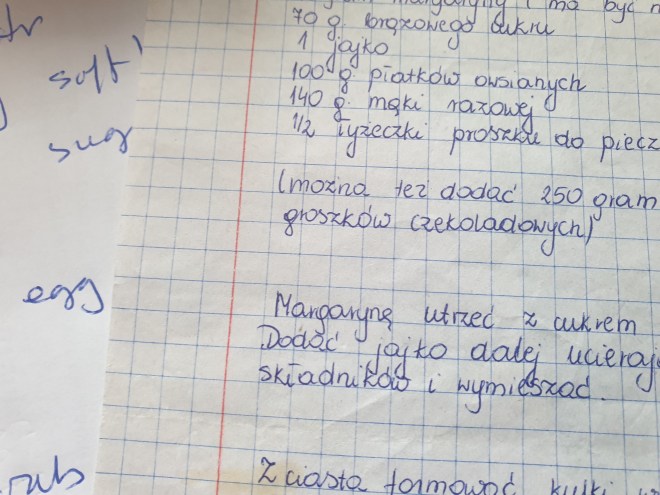 margaryny (ma być
70 g. brązowego cukru
1 jajko
100 g. płatków owsianych
140 g. mąki razowej
1/2 łyżeczki proszku do piecz
(można też dodać 250 gram
groszków czekoladowych)
Margarynę utrzeć z cukrem
Dodać jajko dalej ucieraj
składników i wymieszać.
Z ciasta formować kulki
soft
sug
egg
rub